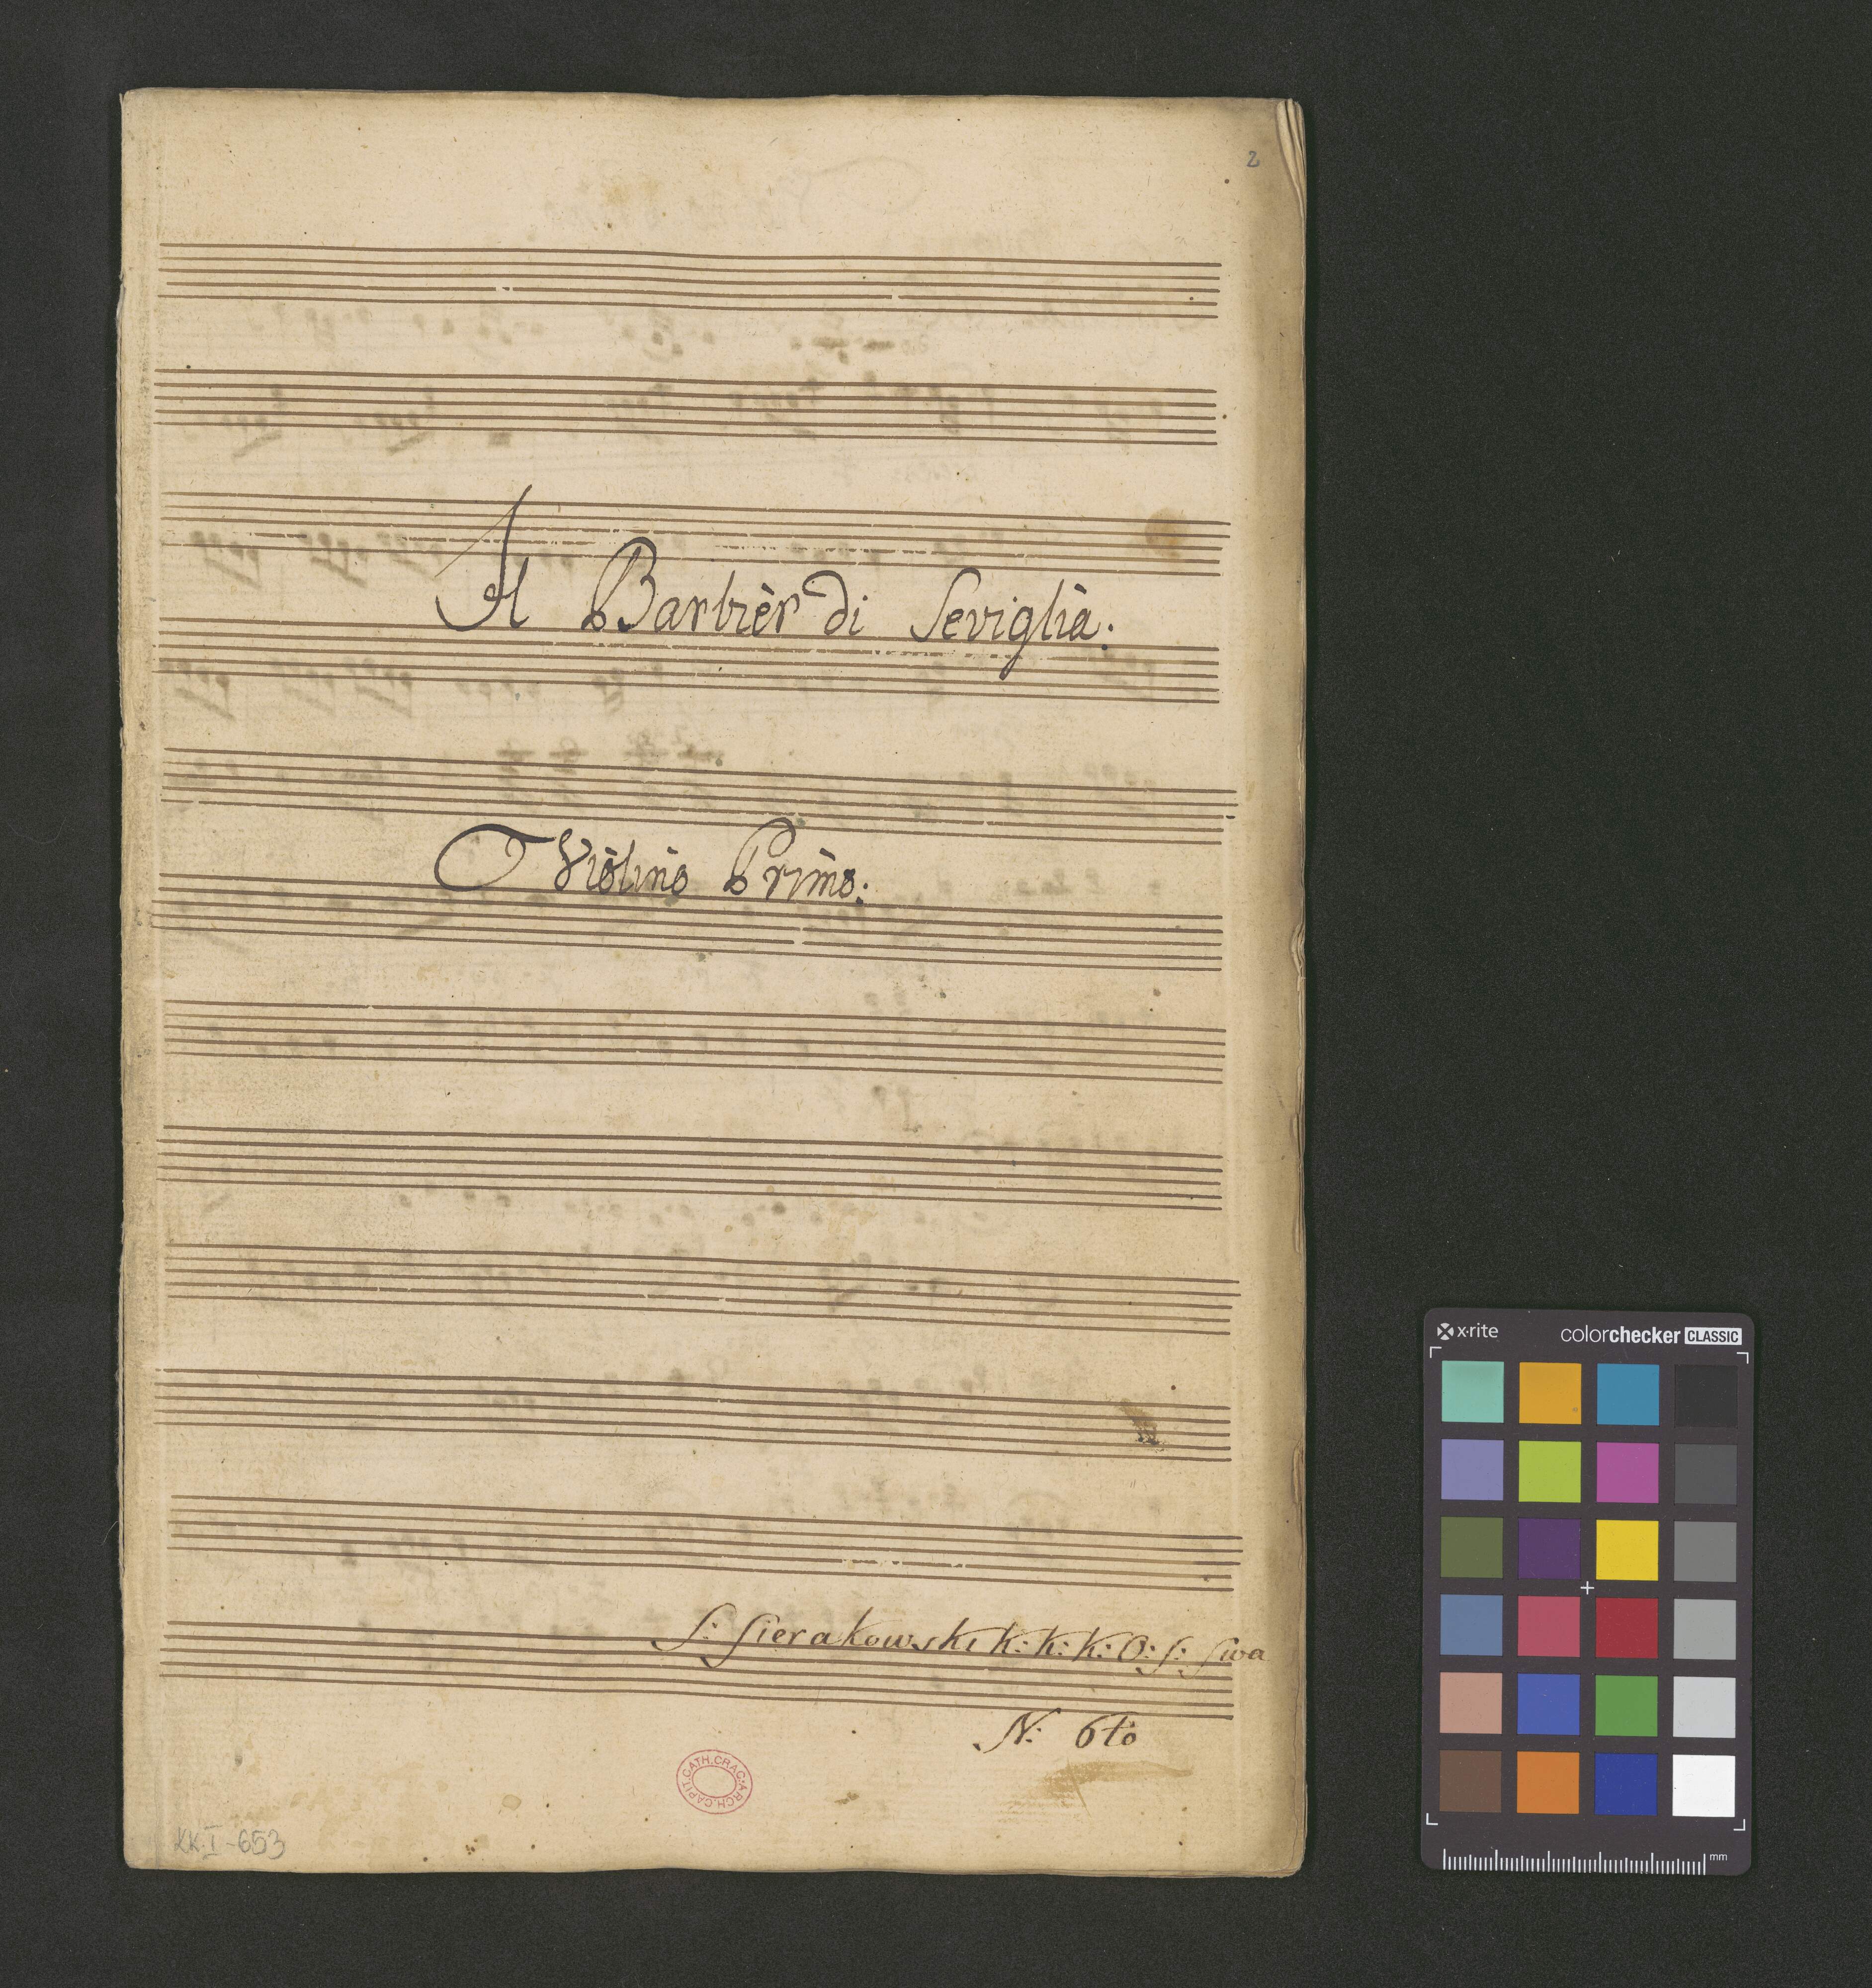 2
Il Barbièr di Seviglia.
Violino Primo:
S: Sierakowski K: K: K: O: S: Swa
N: 6to
CAPIT. CATH. CRAC. ARCH.
KK I-653
x-rite
colorchecker CLASSIC
mm